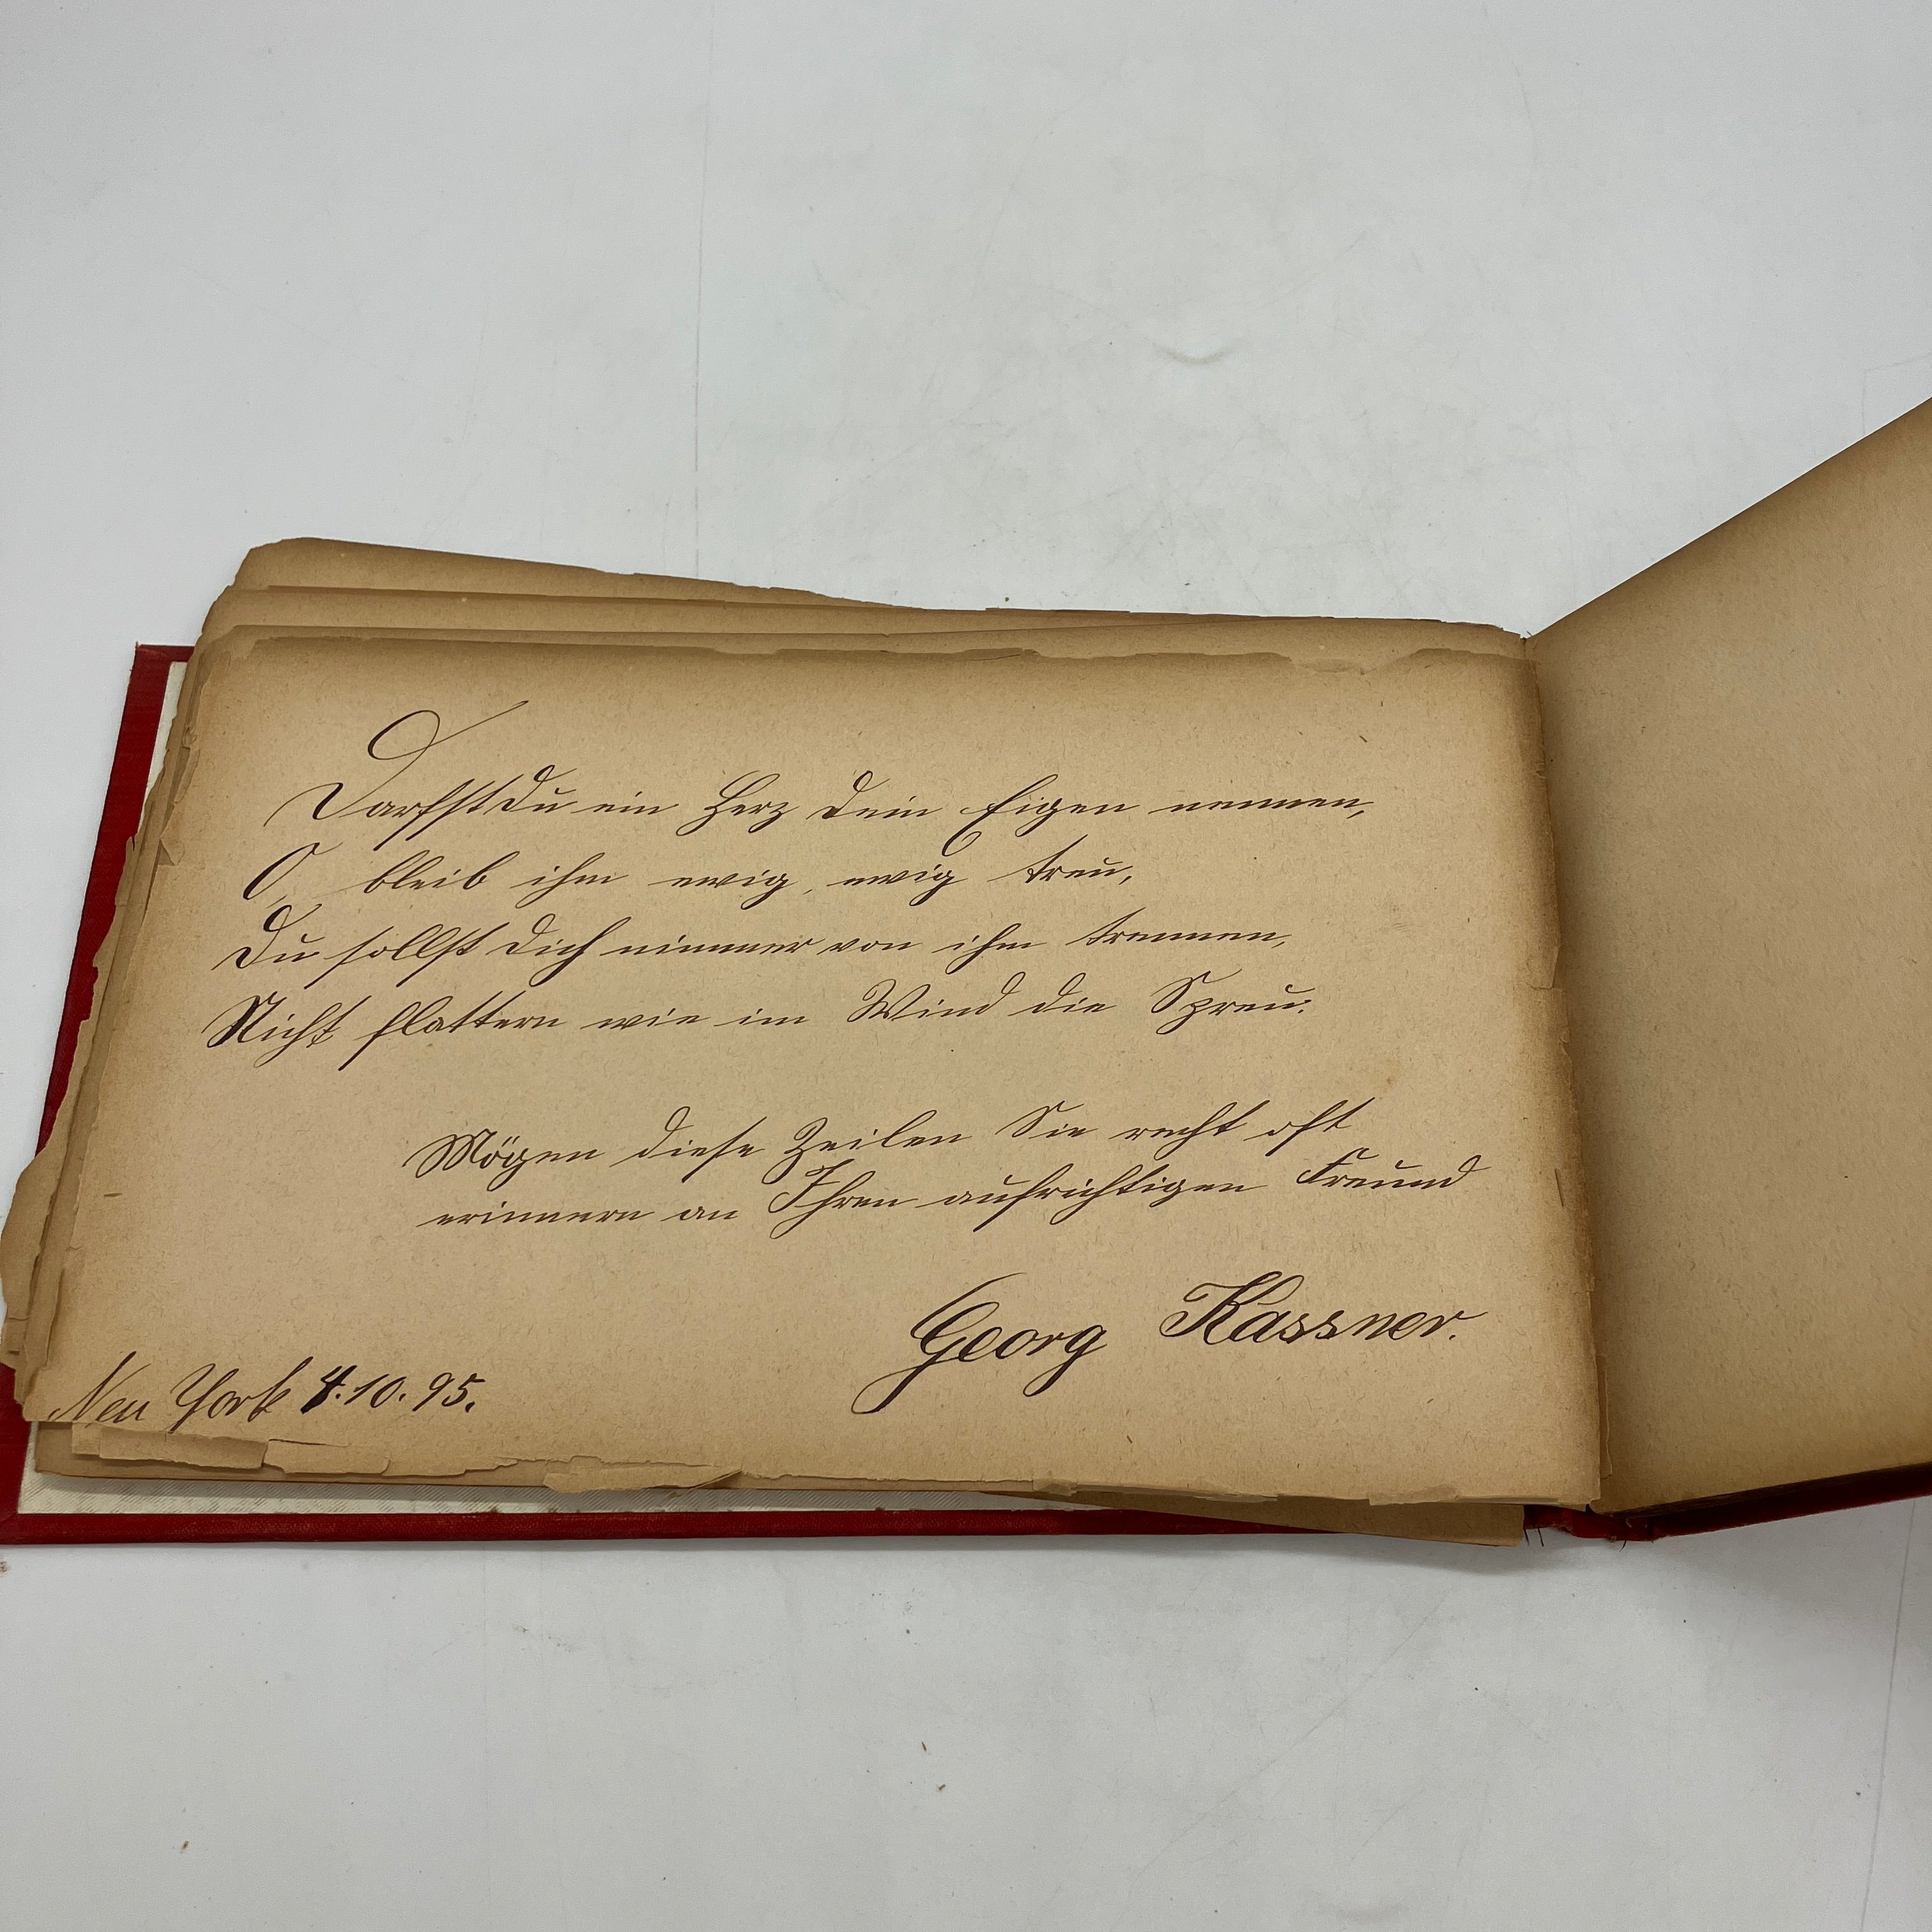 Darfst Du ein Herz Dein Eigen nennen,
O, bleib ihm ewig, ewig treu,
Du sollst Dich nimmer von ihm trennen,
Nicht flattern wie im Wind die Spreu.
Mögen diese Zeilen Sie recht oft
erinnern an Ihren aufrichtigen Freund
Georg Kassner.
New York 4.10.95.